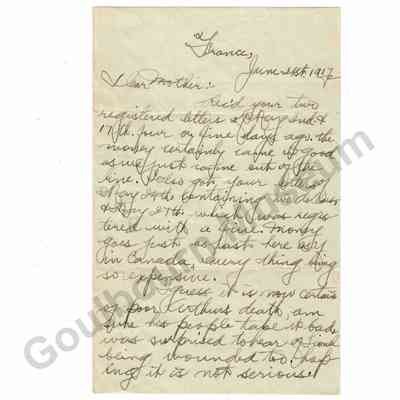 France,
June 21st, 1917
Dear Mother:
Rec'd your two
registered letters of May 2nd &
17th four or five days ago. the
money certainly came in good
as we just came out of the
line. Also got your letter of
May 24th containing
& May 27th. which was regis
tered with a fine. money
goes just as fast here as
in Canada, every thing being
so expensive.
I guess it is now certain
of poor Arthurs death, am
sure his people take it bad.
was surprised to hear of Lional
being wounded too. hop
ing it is not serious.
Goulbourn Museum